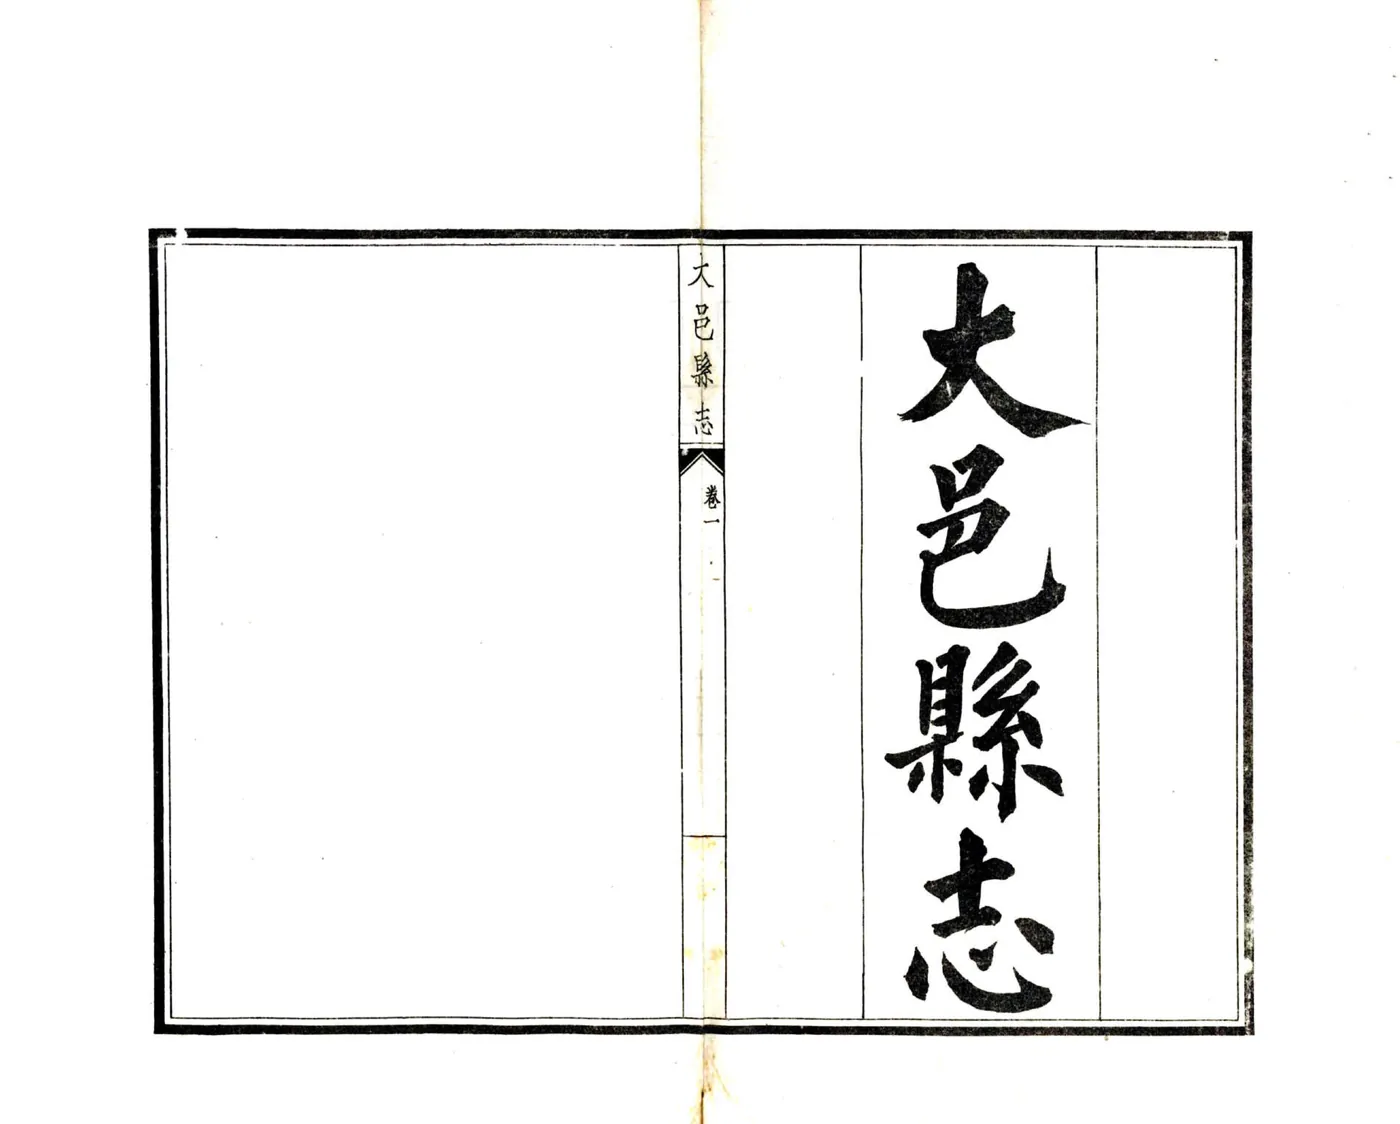 大邑縣志
大邑縣志
卷一